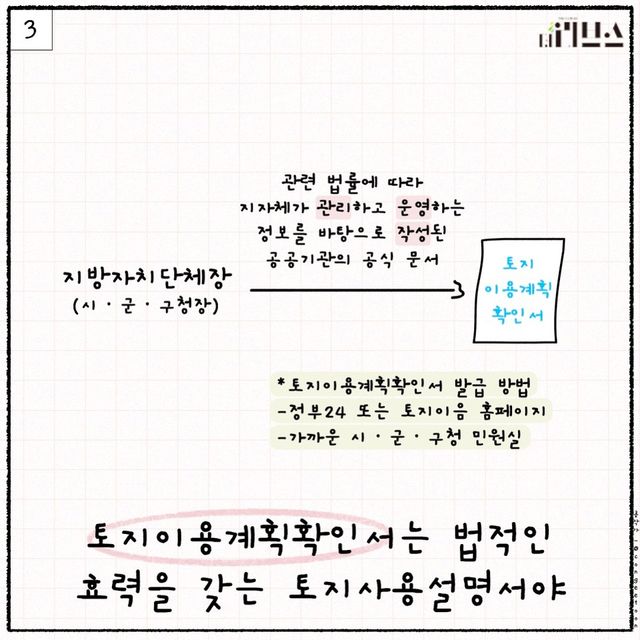 3
더리브스
관련 법률에 따라
지자체가 관리하고 운영하는
정보를 바탕으로 작성된
공공기관의 공식 문서
지방자치단체장
(시·군·구청장)
토지
이용계획
확인서
*토지이용계획확인서 발급 방법
-정부24 또는 토지이음 홈페이지
-가까운 시·군·구청 민원실
토지이용계획확인서는 법적인
효력을 갖는 토지사용설명서야